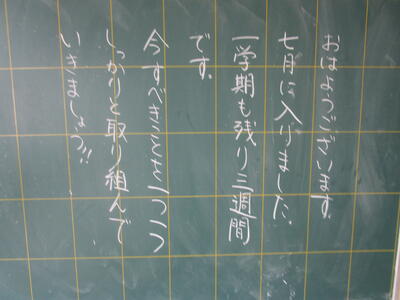 おはようございます。
七月に入りました。
一学期も残り三週間
です。
今すべきことを一つ一つ
しっかりと取り組んで
いきましょう!!